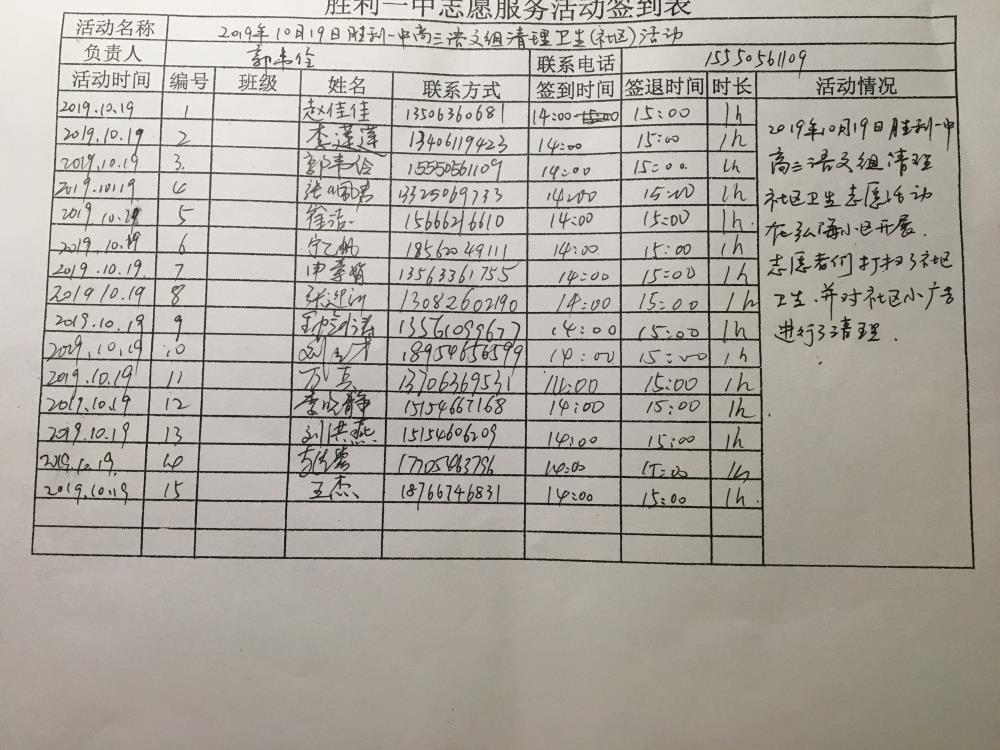 胜利一中志愿服务活动签到表
活动名称 2019年10月19日胜利一中高三语文组清理卫生(社区)活动
负责人 郭韦伶 联系电话 15550561109
活动时间 编号 班级 姓名 联系方式 签到时间 签退时间 时长 活动情况
2019.10.19 1 赵佳佳 13506360681 14:00 15:00 1h
2019.10.19 2 李莲莲 13406119423 14:00 15:00 1h
2019.10.19 3. 郭韦伶 15550561109 14:00 15:00 1h
2019.10.19 4 13325069733 14:00 15:00 1h
2019.10.19 5 徐洁 15666216610 14:00 15:00 1h
2019.10.19. 6 宁乙帆 18562049111 14:00 15:00 1h
2019.10.19 7 13563361755 14:00 15:00 1h
2019.10.19 8 13082602190 14:00 15:00 1h
2019.10.19 9 13561099677 14:00 15:00 1h
2029.10.19 10 18954656599 14:00 15:00 1h
2019.10.19 11 万真 13706369531 14:00 15:00 1h
2019.10.19 12 李晓静 15154667168 14:00 15:00 1h
2019.10.19 13 刘洪燕 15154606209 14:00 15:00 1h
2019.12.19. 14 17705463796 14:00 15:00 1h
2019.10.19 15 王杰 18766746831 14:00 15:00 1h.
2019年10月19日胜利一中
高三语文组清理
社区卫生志愿活动
在弘海小区开展.
志愿者们打扫了社区
卫生.并对社区小广告
进行了清理.